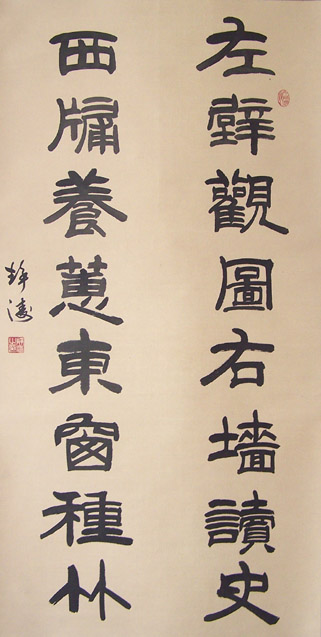 左壁觀圖右墻讀史
西牖養蕙東窗種竹